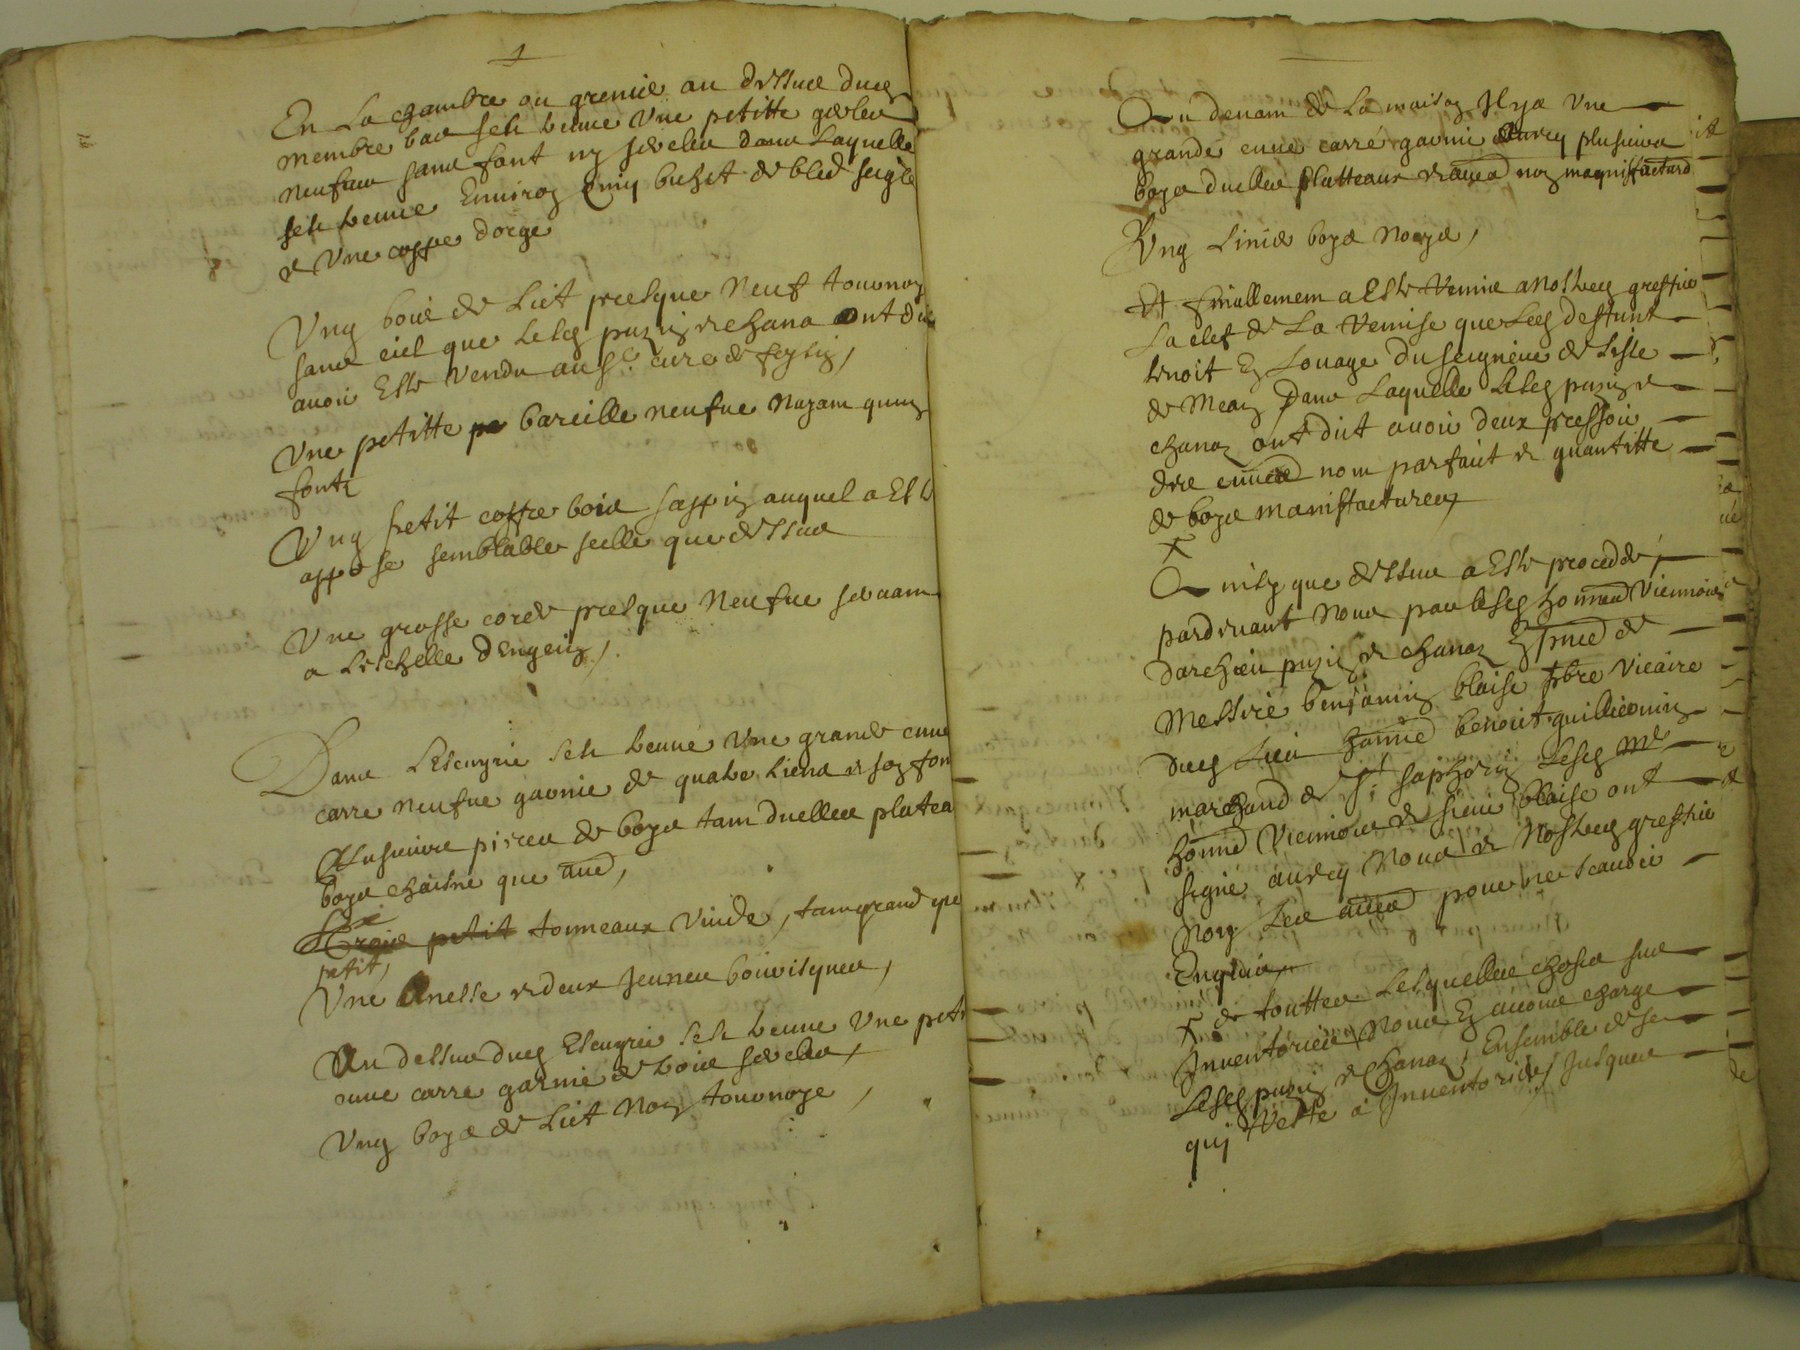 En La chambre ou grenie au dessus dud
membre bas sest treuve Une petitte gerle
neufve sans font ny sercles dans Laquelle
sest treuve Environ cinq bichet de bled seigle
et Une coppe dorge
Ung bois de Lict presque Neuf tournoy
sans ciel que Lesd puzin et chana ont dit
avoir Este Vendu au sr cure de feysin,
Une petitte bareille neufve Nayant qung
font
Ung petit coffre bois sappin auquel a Este
appose semblable seelle que dessus
Une grosse corde presque Neufve servant
a Leschelle d'engein,
Dans Lescuyrie sest treuve Une grande cuve
carre neufve garnie de quatre Liens et son fon
Plusieurs pieces de boys tant duelles platea
boys chaisne que aue,
Six
Trois petit tonneaux Vuide, tant grand que
petit,
Une Anesse et deux Jeunes bourisques,
Au dessus dud Escuyrie sest treuve Une petit
cuve carre garnie de bois sercles,
Ung boys de Lict Non tournoye,
Au devant de La maison Il y a Une
grande cuve carré garnie Avecq plusieurs
boys duelles Platteaux et aues non magniffactard
Ung Linier boys Noyé,
Et finallement a Este Remise a Nostred greffier
La clef de La Remise que Led deffunt
tenoit En Louage du seigneur de Lisle
de Mean Dans Laquelle Lesd puzin et
chanaz ont dict avoir deux pressoir
de cuves nom parfaict et quantitte
de boys maniffacturez
+
Ainsy que dessus a Este procedde,
pardevant Nous par lesd honnes Viennois
Darchieu puzin et chanaz En pnce de
Messire benjamin blaise pbre Vicaire
dud Lieu honne benoist guillermin
marchand de St saphorin Lesd Me
honne Viennois et sieur blaise ont
signé avecq Nous et Nostred greffier
Non Les aues pour ne scavoir
Enquis
+ de touttes Lesquelles choses sus
Inventoriées Nous En avons charge
Lesd puzin et chanaz, Ensemble de se
quy Reste a Inventorier Jusques